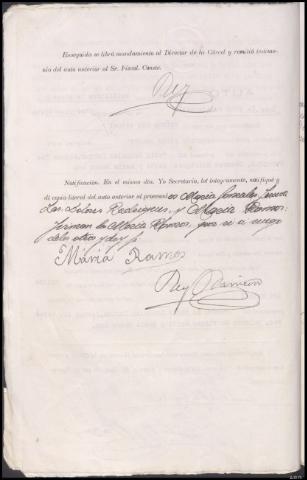 Enseguida se libró mandamiento al Director de la Cárcel y remitió testimo-
nio del auto anterior al Sr. Fiscal. Conste.
Rey
Notificación. En el mismo día. Yo Secretario, leí íntegramente, notifiqué y
di copia literal del auto anterior al procesado María González
Dolores Rodríguez, y María Ramos:
firman la María Ramos, por sí a ruego
de la otra y doy fé
María Ramos
Rey